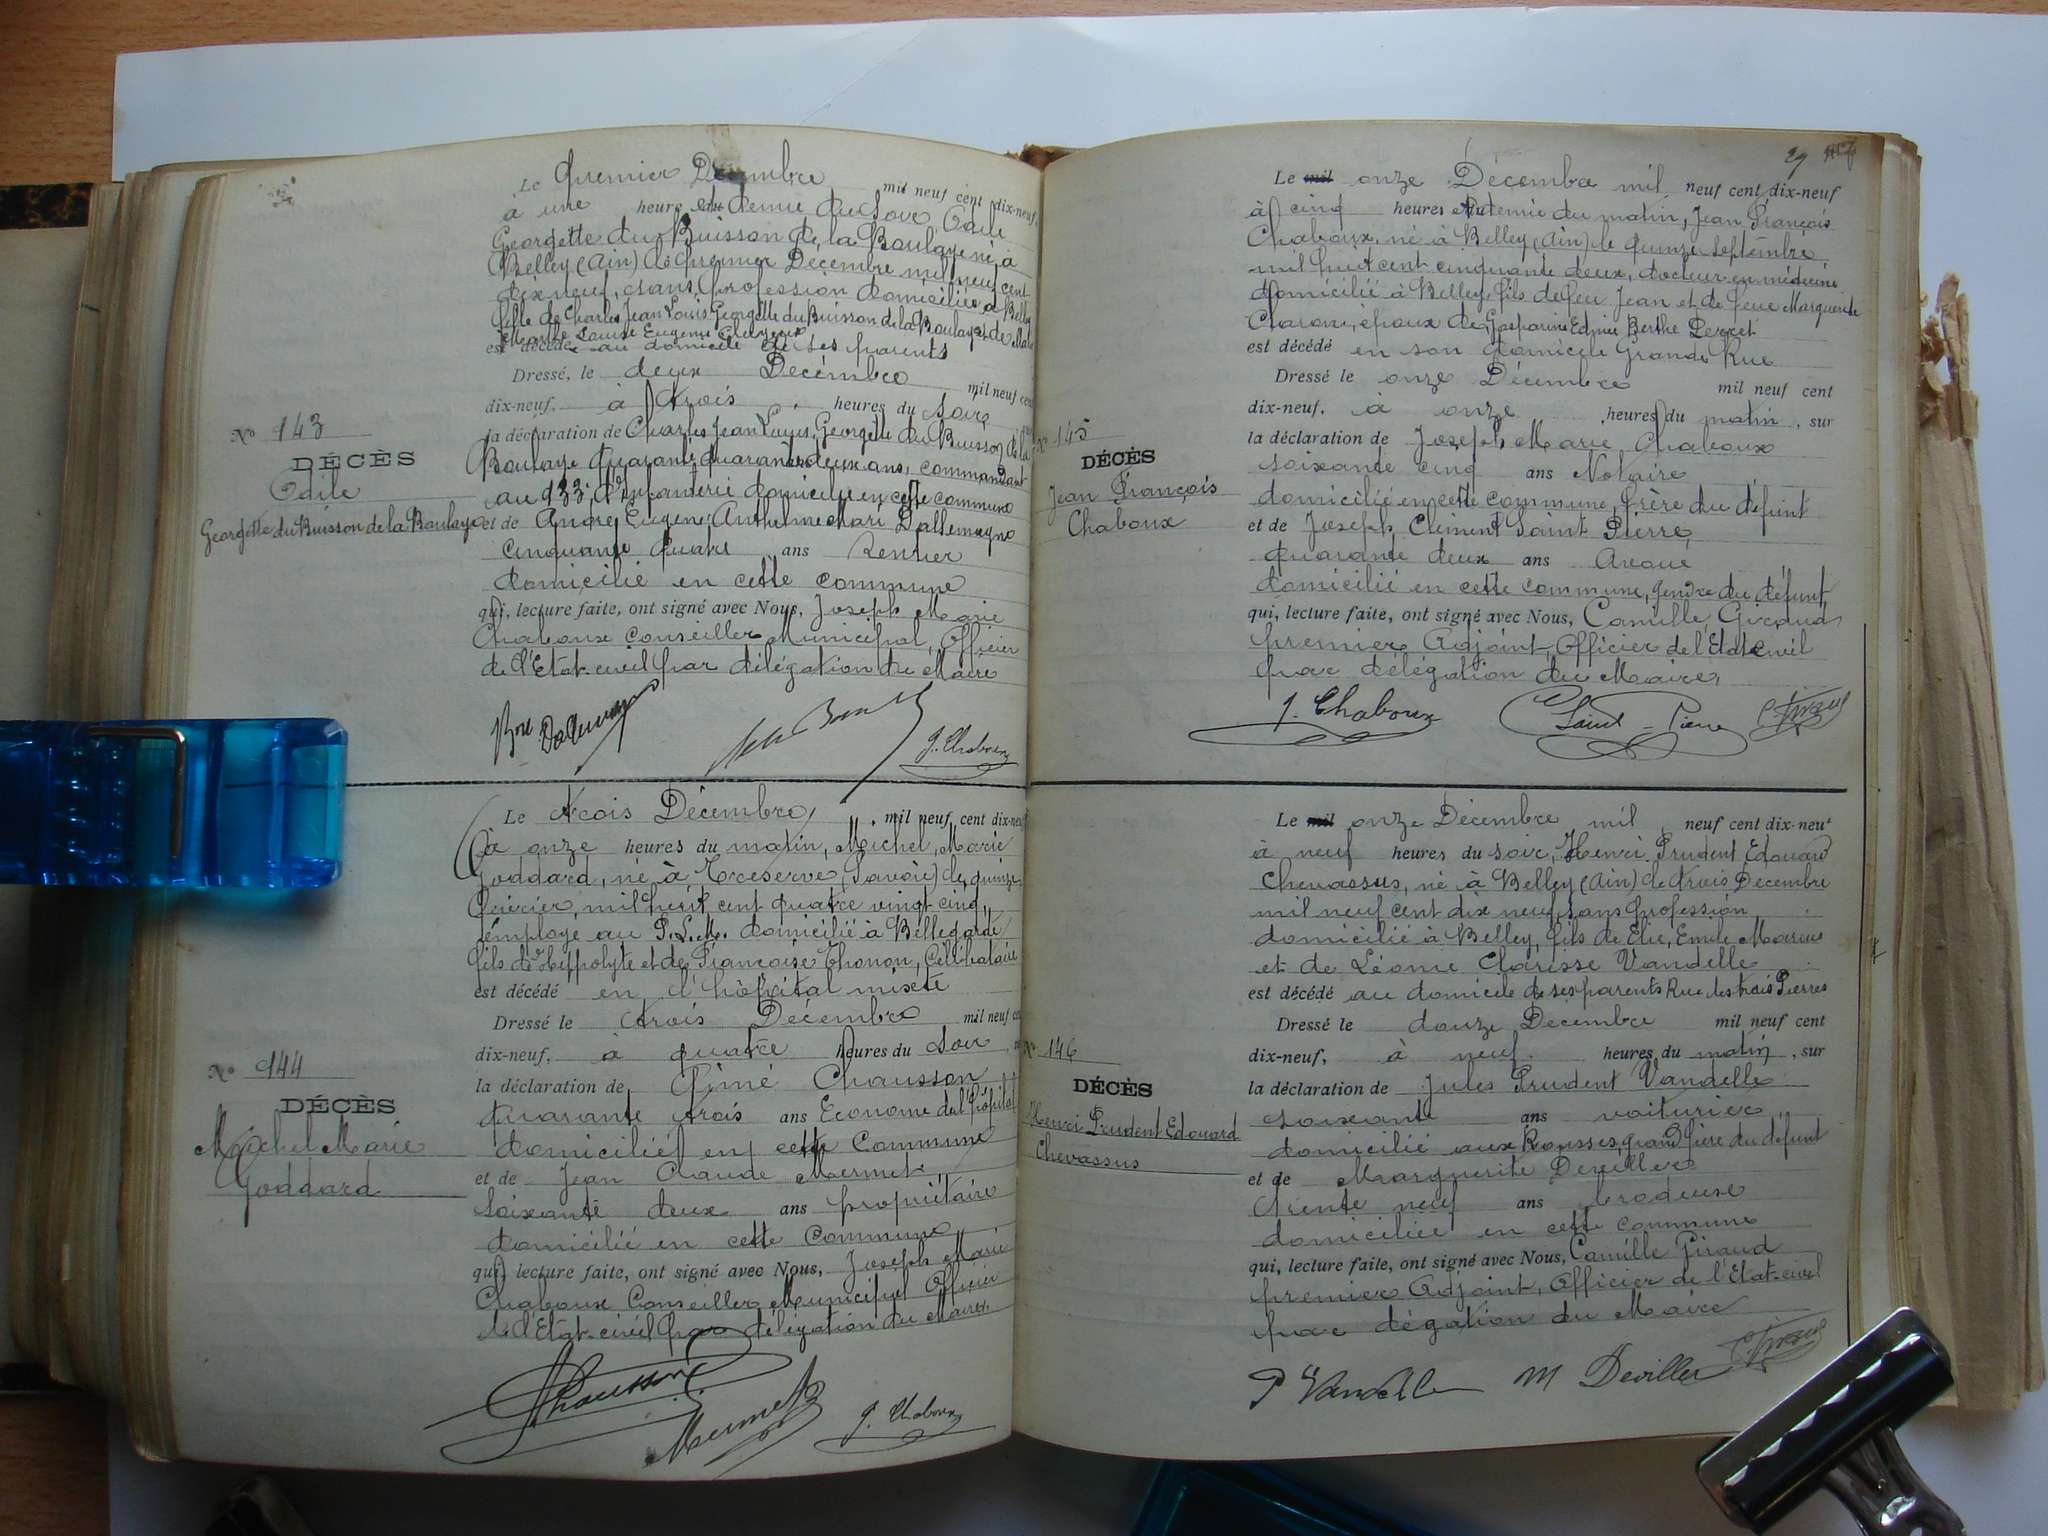 Le premier Décembre mil neuf cent dix-neuf,
à une heure et demie du soir Odile
Georgette du Buisson de la Boulaye né à
Belley (Ain) le premier Décembre mil neuf cent
dix neuf, sans profession domiciliée à Belley
fille de Charles Jean Louis Georgette du Buisson de la Boulaye et de
Marthe Louise Eugénie
est décédé au domicile de ses parents
Dressé, le deux Décembre mil neuf cent
dix-neuf, à trois heures du soir
la déclaration de Charles Jean Louis, Georgette du Buisson de la
Boulaye quarante deux ans, commandant
au 133e d'Infanterie domicilié en cette commune
et de André Eugène Anthelme Mari Dallemagne
cinquante quatre ans Rentier
domicilié en cette commune
qui, lecture faite, ont signé avec Nous, Joseph Marie
Chaboux Conseiller Municipal, Officier
de l'Etat-civil par délégation du Maire
J. Chaboux
No 143
DÉCÈS
Odile
Georgette du Buisson de la Boulaye
Le trois Décembre, mil neuf cent dix-neuf
à onze heures du matin, Michel, Marie
Goddard, né à Tresserve (Savoie) le quinze
Février, mil huit cent quatre vingt cinq,
employé au P.L.M. domicilié à Bellegarde
fils de Hippolyte et de Françoise Thonon, Célibataire
est décédé en l'hôpital mixte
Dressé le trois Décembre mil neuf cent
dix-neuf, à quatre heures du soir
la déclaration de Aimé Chausson
quarante trois ans Econome de l'hôpital
domicilié en cette Commune
et de Jean Claude Mermet
soixante deux ans propriétaire
domicilié en cette Commune
qui, lecture faite, ont signé avec Nous, Joseph Marie
Chaboux Conseiller Municipal Officier
de l'Etat-civil par délégation du Maire,
Chausson
Mermet
J. Chaboux
No 144
DÉCÈS
Michel Marie
Goddard
29
Le mil onze Décembre mil neuf cent dix-neuf
à cinq heures et demie du matin, Jean François
Chaboux, né à Belley (Ain) le quinze septembre
mil huit cent cinquante deux, docteur en médecine
domicilié à Belley, fils de feu Jean et de feue Marguerite
Charon, époux de Gasparine Edmée Berthe Peycet
est décédé en son domicile Grande Rue
Dressé le onze Décembre mil neuf cent
dix-neuf, à onze heures du matin, sur
la déclaration de Joseph Marie Chaboux
soixante cinq ans Notaire
domicilié en cette commune, frère du défunt
et de Joseph, Clément Saint Pierre,
quarante deux ans Avoué
domicilié en cette commune, gendre du défunt
qui, lecture faite, ont signé avec Nous, Camille Giraud
premier Adjoint, Officier de l'Etat civil
par délégation du Maire,
J. Chaboux
Saint-Pierre
C. Giraud
No 145
DÉCÈS
Jean François
Chaboux
Le mil onze Décembre mil neuf cent dix-neuf
à neuf heures du soir, Henri Prudent Edouard
Chevassus, né à Belley (Ain) le trois Décembre
mil neuf cent dix neuf sans profession
domicilié à Belley, fils de Elie, Emile Marius
et de Léonie Clarisse Vandelle
est décédé au domicile de ses parents Rue des trois Pierres
Dressé le douze Décembre mil neuf cent
dix-neuf, à neuf heures du matin, sur
la déclaration de Jules Prudent Vandelle
soixante ans voiturier
domicilié aux Rousses, grand père du défunt
et de Marguerite Deviller
trente neuf ans brodeuse
domiciliée en cette commune
qui, lecture faite, ont signé avec Nous, Camille Giraud
premier Adjoint, Officier de l'Etat-civil
par dégation du Maire
P Vandelle
M Deviller
C. Giraud
No 146
DÉCÈS
Henri Prudent Edouard
Chevassus